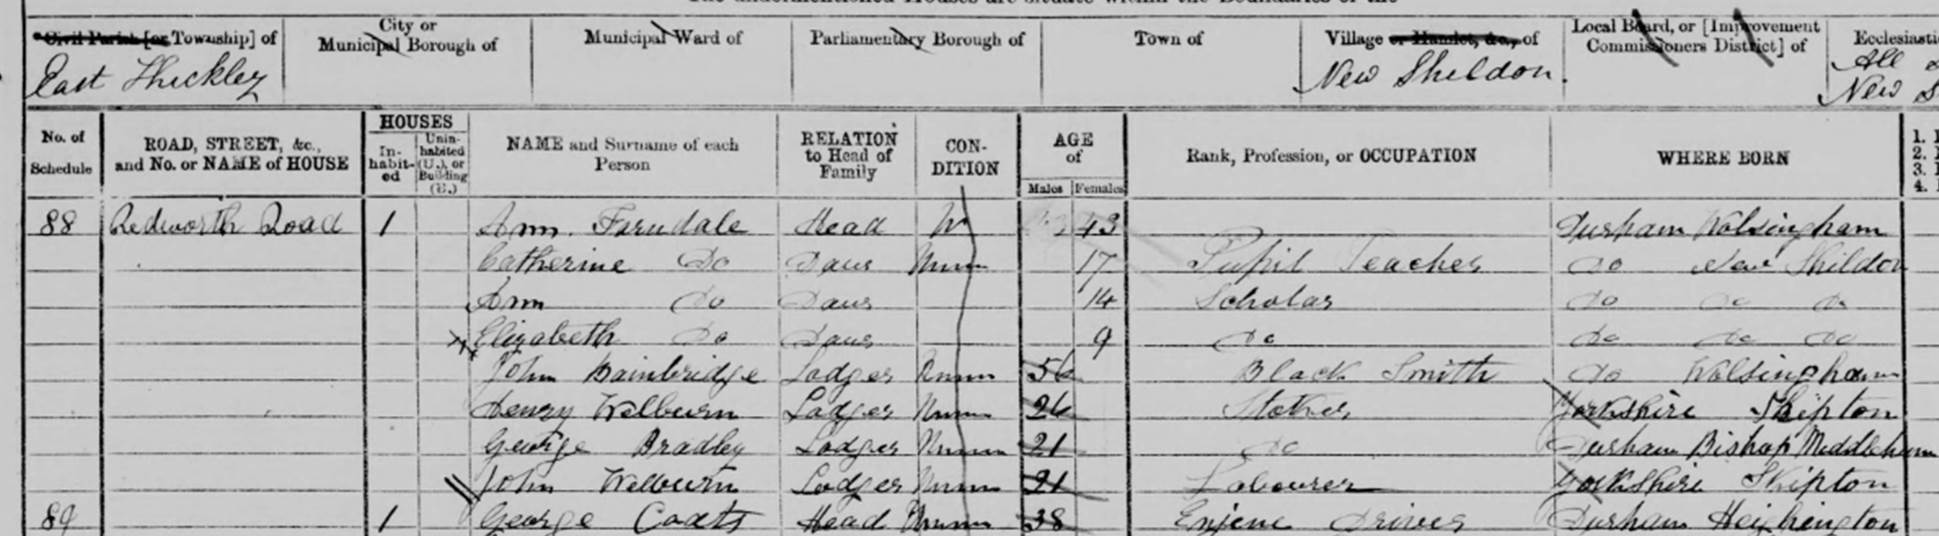 The undermentioned Houses are situate within the Boundaries of the
Civil Parish [or Township] of
City or Municipal Borough of
Municipal Ward of
Parliamentary Borough of
Town of
Village or Hamlet, &c., of
Local Board, or [Improvement Commissioners District] of
East Thickley
New Shildon.
All
New S
No. of Schedule
ROAD, STREET, &c., and No. or NAME of HOUSE
HOUSES
In-habit-ed
Unin-habited (U.), or Building (B.)
NAME and Surname of each Person
RELATION to Head of Family
CON-DITION
AGE of
Males Females
Rank, Profession, or OCCUPATION
WHERE BORN
1.
2.
3.
4.
88 Redworth Road 1 Ann Farndale Head W 43 Durham Wolsingham
Catherine Do Daur Unm 17 Pupil Teacher Do New Shildon
Ann Do Daur 14 Scholar Do Do Do
Elizabeth Do Daur 9 Do Do Do Do
John Bainbridge Lodger Unm 56 Black Smith Do Wolsingham
Henry Welburn Lodger Unm 26 Stoker Yorkshire Skipton
George Bradley Lodger Unm 21 Do Durham Bishop Middleham
John Welburn Lodger Unm 21 Labourer Yorkshire Skipton
89 1 George Coats Head Unm 38 Enjene Driver Durham Heighington